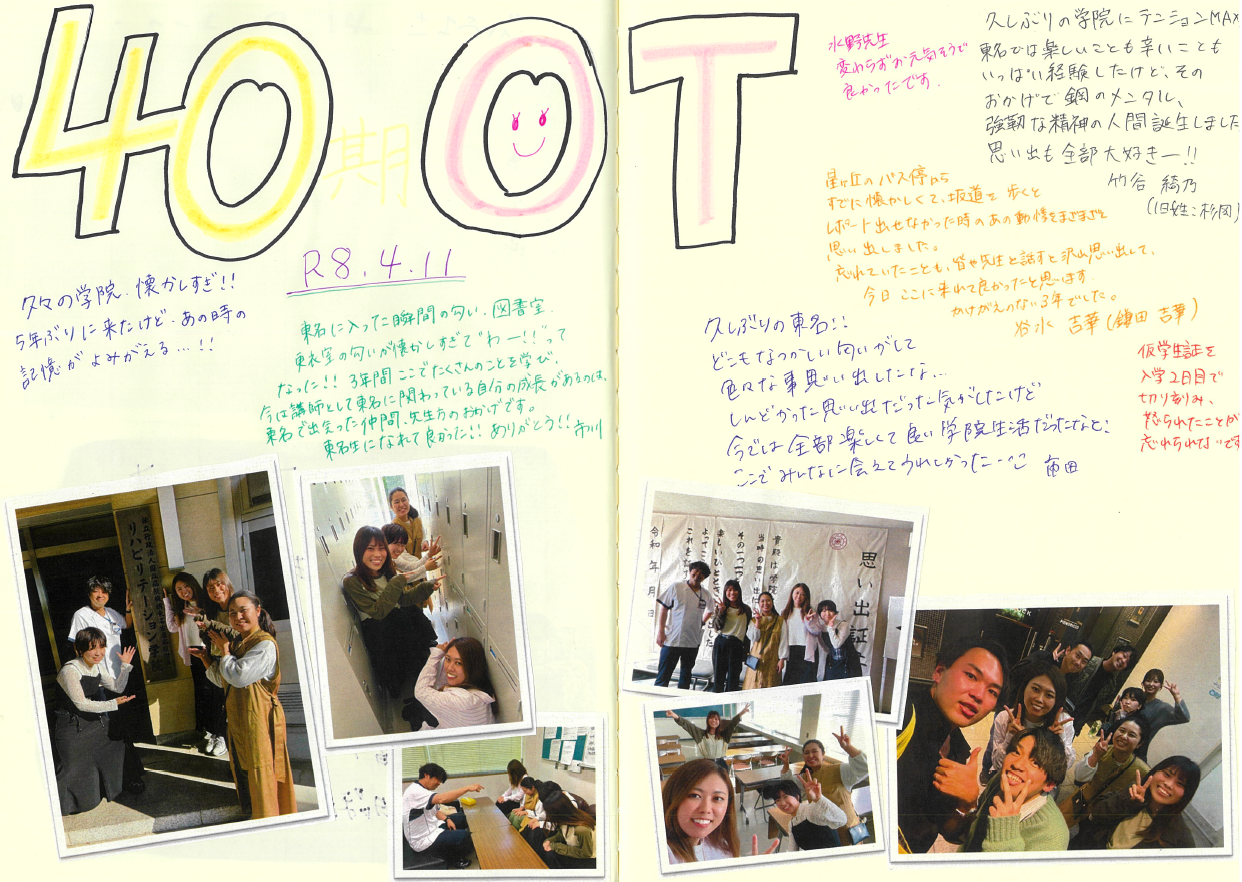 40期 OT
R8.4.11
久々の学院、懐かしすぎ!!
5年ぶりに来たけど、あの時の
記憶がよみがえる…!!
東名に入った瞬間の匂い、図書室、
更衣室の匂いが懐かしすぎて"わー!!"って
なった!! 3年間ここでたくさんのことを学び、
今は講師として東名に関わっている自分の成長があるのは、
東名で出会った仲間、先生方のおかげです。
東名生になれて良かった!! ありがとう!! 市川
水野先生
変わらずお元気そうで
良かったです.
久しぶりの学院にテンションMAX
東名では楽しいことも辛いことも
いっぱい経験したけど、その
おかげで鋼のメンタル、
強靭な精神の人間誕生しました
思い出も全部大好きー!!
竹谷 綺乃
(旧姓:杉岡)
星ヶ丘のバス停から
すでに懐かしくて、坂道を歩くと
レポート出せなかった時のあの動悸をまざまざと
思い出しました。
忘れていたことも、皆や先生と話すと沢山思い出して、
今日ここに来れて良かったと思います
かけがえのない3年でした。
谷水 吉華(鎌田 吉華)
久しぶりの東名!!
どこもなつかしい匂いがして
色々な事思い出したな…
しんどかった思い出だった気がしたけど
今では全部楽しくて良い学院生活だったなと!
ここでみんなに会えてうれしかったー
仮学生証を
入学2日目で
切り刻み、
怒られたことが
忘れられないです
リハビリテーション学院
思い出証
貴殿は学院
当時の思い出
その一つ一つ
楽しいひととき
よってここ
これを
令和 年 月 日